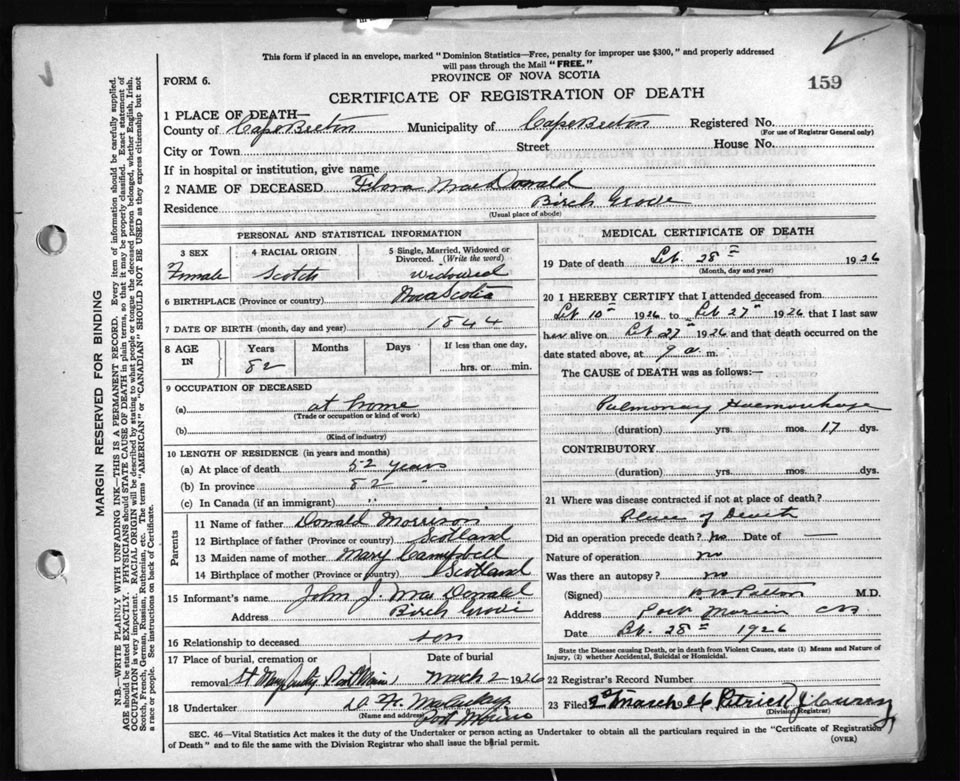 This form if placed in an envelope, marked "Dominion Statistics—Free, penalty for improper use $300," and properly addressed
will pass through the Mail "FREE."
FORM 6.
PROVINCE OF NOVA SCOTIA
159
CERTIFICATE OF REGISTRATION OF DEATH
1 PLACE OF DEATH—
County of Cape Breton Municipality of Cape Breton Registered No.
(For use of Registrar General only)
City or Town Street House No.
If in hospital or institution, give name
2 NAME OF DECEASED Flora MacDonald
Residence Birch Grove
(Usual place of abode)
PERSONAL AND STATISTICAL INFORMATION
3 SEX 4 RACIAL ORIGIN 5 Single, Married, Widowed or Divorced. (Write the word)
Female Scotch widowed
6 BIRTHPLACE (Province or country) Nova Scotia
7 DATE OF BIRTH (month, day and year) 1844
8 AGE IN Years Months Days If less than one day,
82 hrs. or min.
9 OCCUPATION OF DECEASED
(a) at home
(Trade or occupation or kind of work)
(b)
(Kind of industry)
10 LENGTH OF RESIDENCE (in years and months)
(a) At place of death 52 years
(b) In province 82 "
(c) In Canada (if an immigrant) "
Parents
11 Name of father Donald Morrison
12 Birthplace of father (Province or country) Scotland
13 Maiden name of mother Mary Campbell
14 Birthplace of mother (Province or country) Scotland
15 Informant's name John J. MacDonald
Address Birch Grove
16 Relationship to deceased son
17 Place of burial, cremation or removal Date of burial
St Mary Port Morien March 2 1926
18 Undertaker
(Name and address) Port Morien
MEDICAL CERTIFICATE OF DEATH
19 Date of death Feb. 28th 1926
(Month, day and year)
20 I HEREBY CERTIFY that I attended deceased from
Feb 10th 1926 to Feb 27th 1926 that I last saw
her alive on Feb 27th 1926 and that death occurred on the
date stated above, at 9 a m.
The CAUSE of DEATH was as follows:—
Pulmonary Haemorrhage
(duration) yrs. mos. 17 dys.
CONTRIBUTORY
(duration) yrs. mos. dys.
21 Where was disease contracted if not at place of death?
Place of Death
Did an operation precede death? no Date of —
Nature of operation no
Was there an autopsy? no
(Signed) Patton M.D.
Address Port Morien CB
Date Feb. 28th 1926
State the Disease causing Death, or in death from Violent Causes, state (1) Means and Nature of
Injury, (2) whether Accidental, Suicidal or Homicidal.
22 Registrar's Record Number
23 Filed 2nd March 26 Patrick J
(Division Registrar)
SEC. 46—Vital Statistics Act makes it the duty of the Undertaker or person acting as Undertaker to obtain all the particulars required in the "Certificate of Registration
of Death" and to file the same with the Division Registrar who shall issue the burial permit.
(OVER)
MARGIN RESERVED FOR BINDING
N.B.—WRITE PLAINLY, WITH UNFADING INK—THIS IS A PERMANENT RECORD. Every item of information should be carefully supplied.
AGE should be stated EXACTLY. PHYSICIANS should STATE CAUSE OF DEATH in plain terms, so that it may be properly classified. Exact statement of
OCCUPATION is very important. RACIAL ORIGIN will be described by stating to what people or tongue the deceased person belonged, whether English, Irish,
Scotch, French, German, Russian, Ruthenian, etc. The terms "AMERICAN" or "CANADIAN" SHOULD NOT BE USED as they express citizenship but not
a race or people. See instructions on back of Certificate.